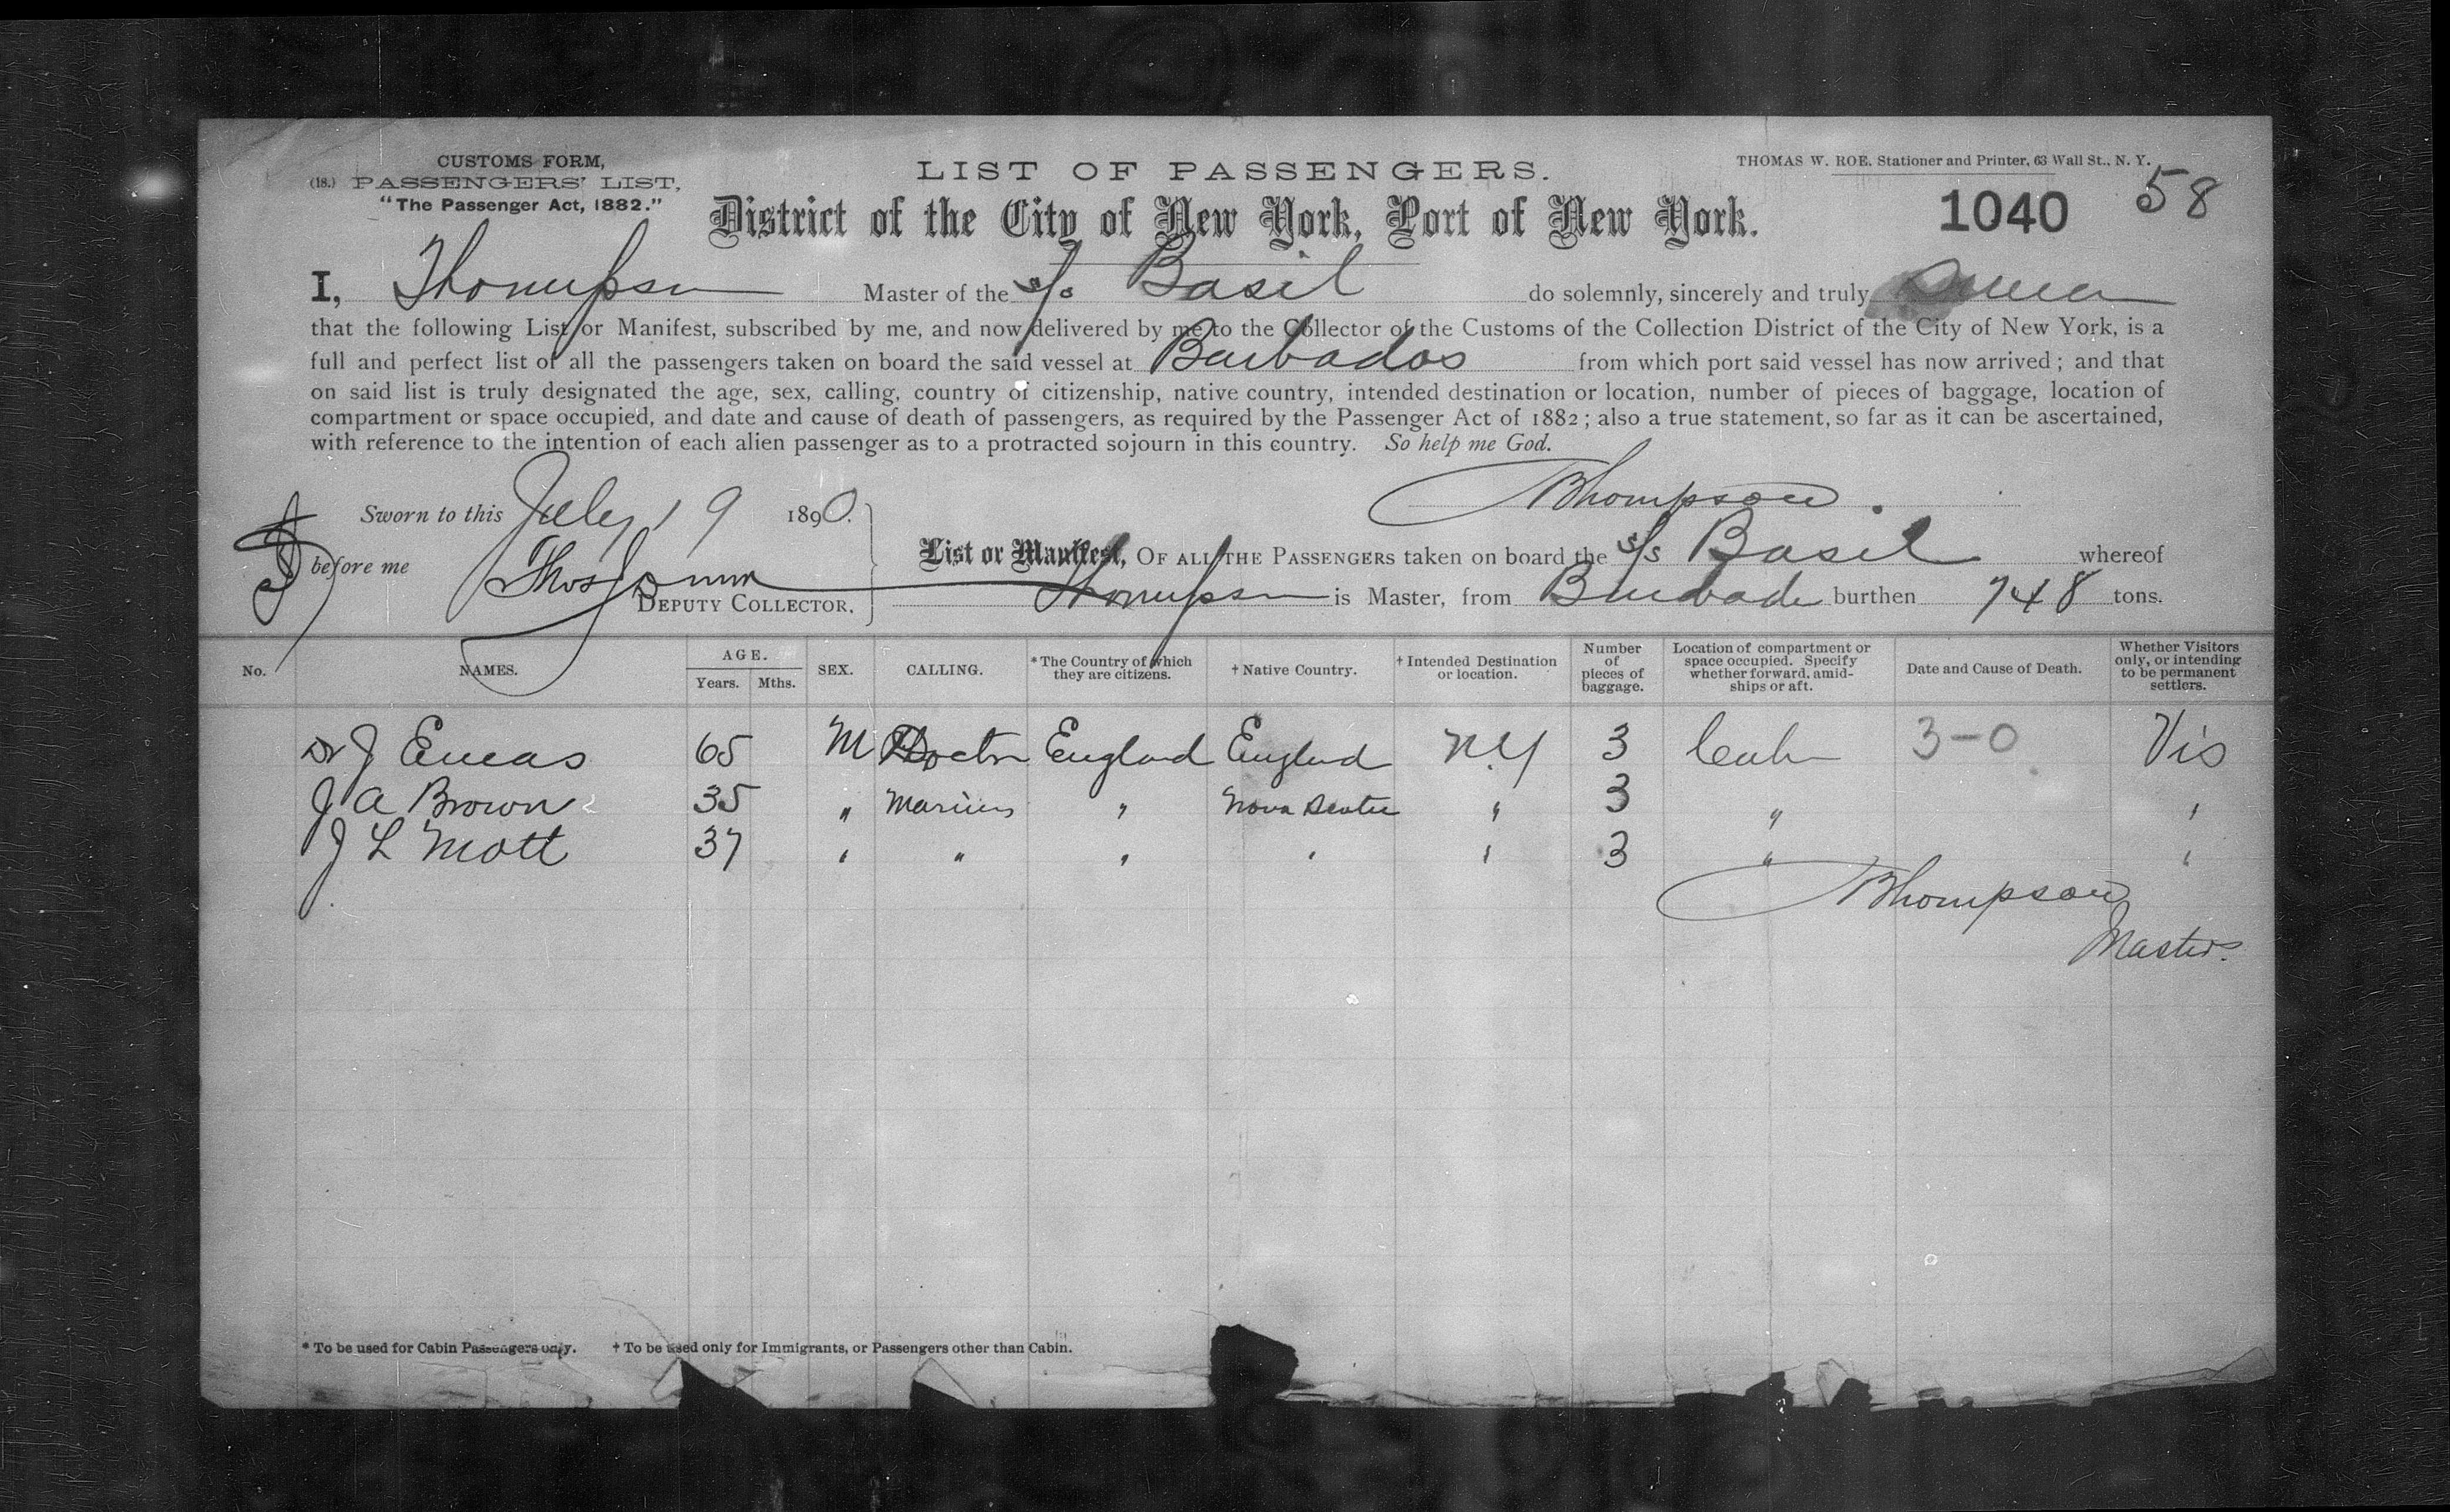 CUSTOMS FORM,
(18.) PASSENGERS' LIST,
"The Passenger Act, 1882."
LIST OF PASSENGERS.
THOMAS W. ROE, Stationer and Printer, 63 Wall St., N. Y.
District of the City of New York, Port of New York.
1040 58
I, Thompson Master of the s/s Basil do solemnly, sincerely and truly
that the following List or Manifest, subscribed by me, and now delivered by me to the Collector of the Customs of the Collection District of the City of New York, is a
full and perfect list of all the passengers taken on board the said vessel at Barbados from which port said vessel has now arrived; and that
on said list is truly designated the age, sex, calling, country of citizenship, native country, intended destination or location, number of pieces of baggage, location of
compartment or space occupied, and date and cause of death of passengers, as required by the Passenger Act of 1882; also a true statement, so far as it can be ascertained,
with reference to the intention of each alien passenger as to a protracted sojourn in this country. So help me God.
Thompson.
Sworn to this July 19 1890.
before me Thos
DEPUTY COLLECTOR,
List or Manifest, OF ALL THE PASSENGERS taken on board the s/s Basil whereof
Thompson is Master, from Barbados burthen 748 tons.
No. NAMES. AGE. Years. Mths. SEX. CALLING. *The Country of which they are citizens. † Native Country. † Intended Destination or location. Number of pieces of baggage. Location of compartment or space occupied. Specify whether forward, amidships or aft. Date and Cause of Death. Whether Visitors only, or intending to be permanent settlers.
Dr J Emcas 65 M Doctor England England N.Y 3 Cabn 3-0 Vis
J A Brown 35 " Mariner " Nova Scotia " 3 " "
J L Mott 37 " " " " " 3 " "
Thompson
Master.
* To be used for Cabin Passengers only. † To be used only for Immigrants, or Passengers other than Cabin.